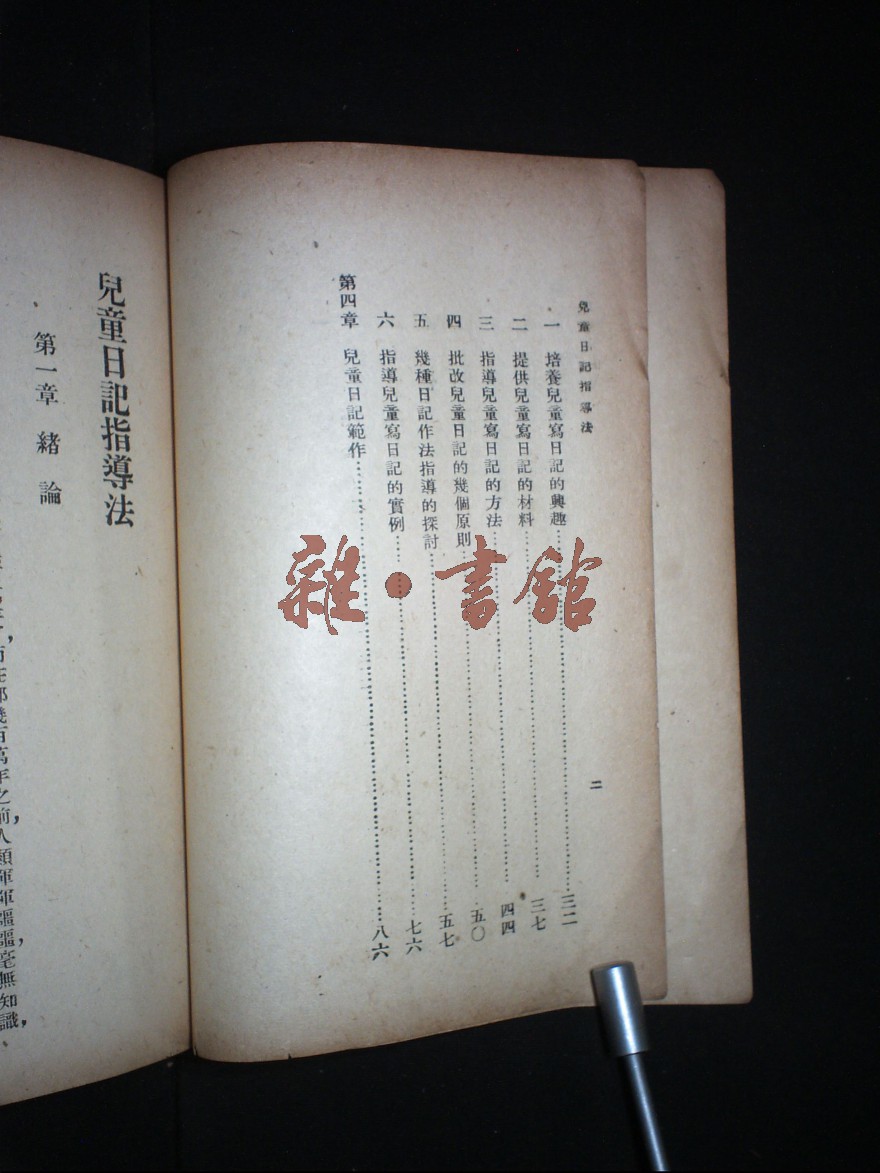 兒童日記指導法
一 培養兒童寫日記的興趣……三二
二 提供兒童寫日記的材料……三七
三 指導兒童寫日記的方法……四四
四 批改兒童日記的幾個原則……五〇
五 幾種日記作法指導的探討……五七
六 指導兒童寫日記的實例……七六
第四章 兒童日記範作……八六
二
雜·書館
兒童日記指導法
第一章 緒論
幾百萬年之前,人類渾渾噩噩,毫無知識,